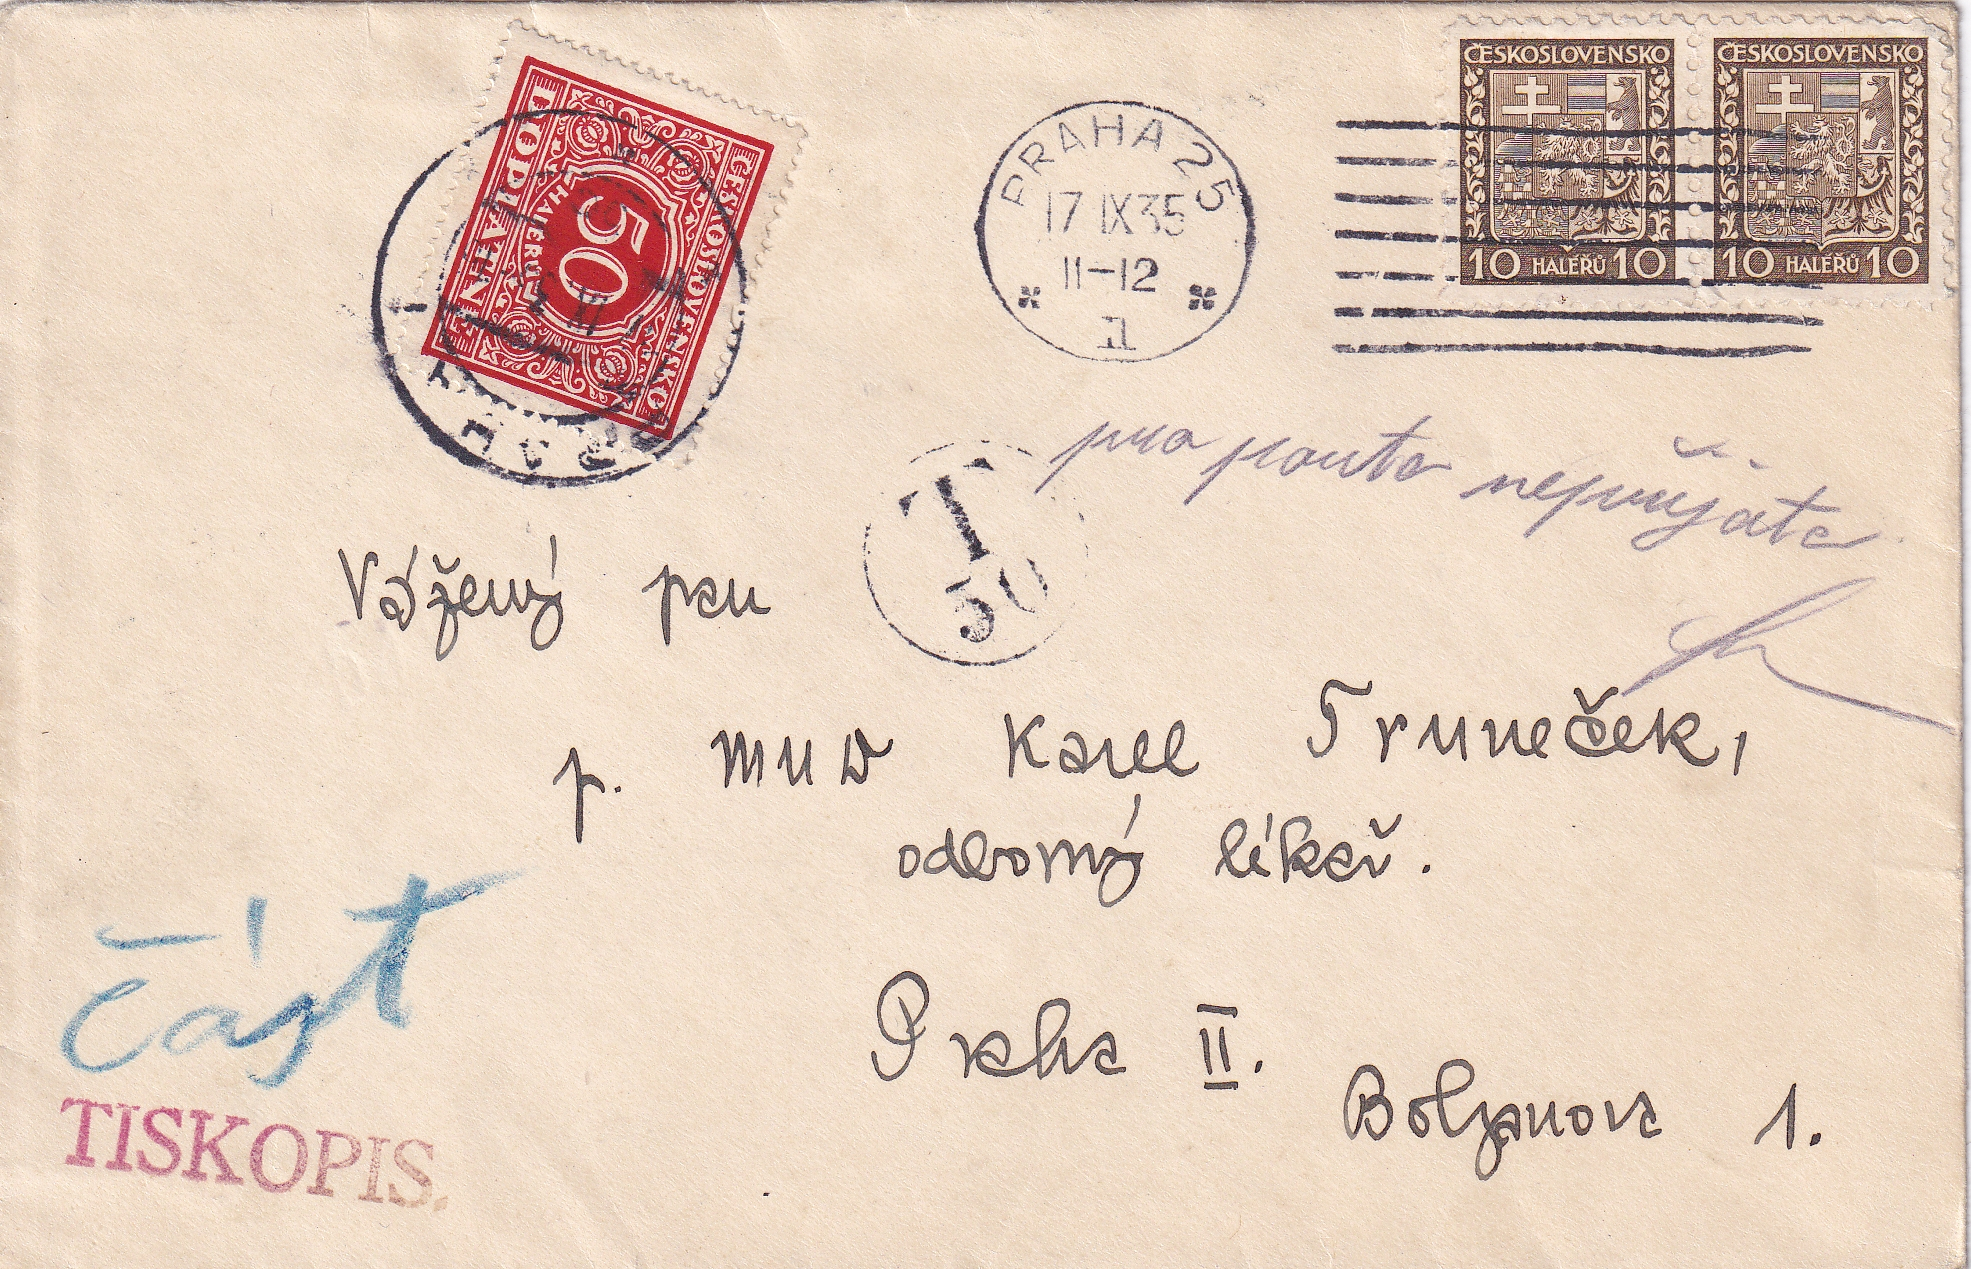 ČESKOSLOVENSKO
10 HALÉŘŮ 10
ČESKOSLOVENSKO
10 HALÉŘŮ 10
ČESKOSLOVENSKO
50
HALÉŘŮ
DOPLATNÉ
PRAHA 25
17 IX 35
11-12
1
PRAHA
T
50
pro nepřijato
Vážený pan
p. MUD Karel Truneček,
odborný lékař.
Praha II.
Bolzanova 1.
část
TISKOPIS.